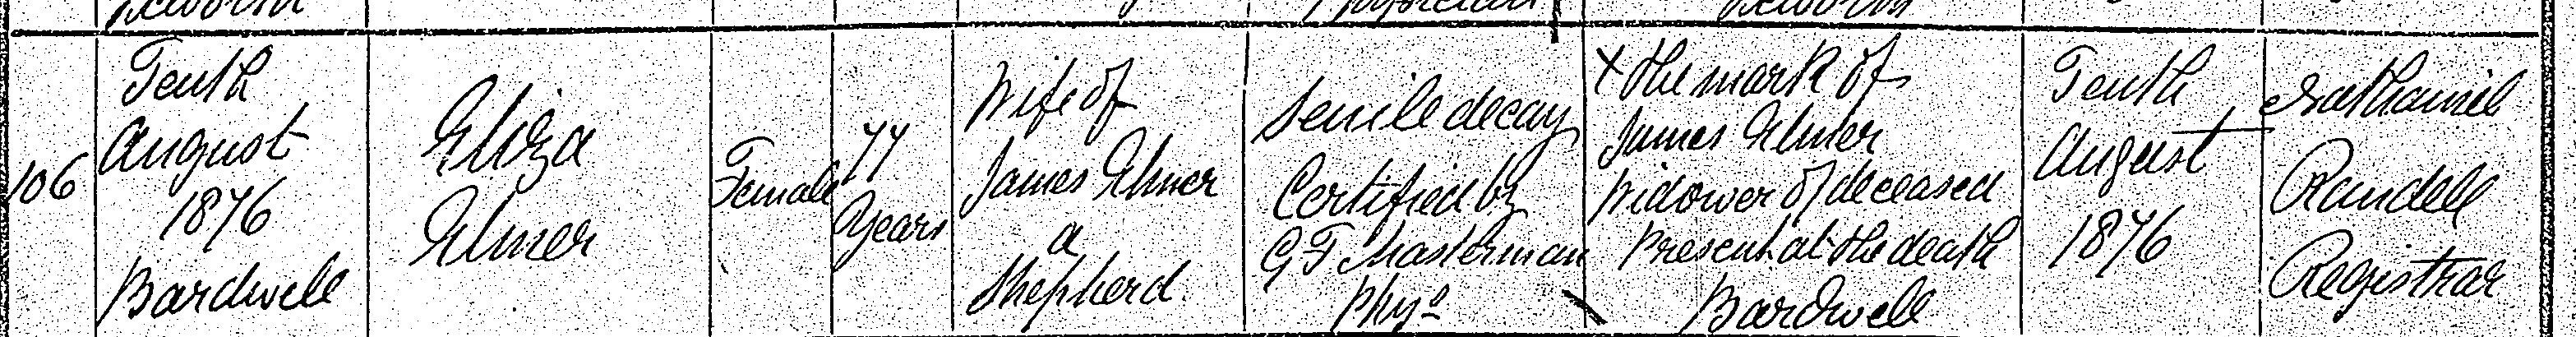 106
Tenth
August
1876
Bardwell
Eliza
Elmer
Female
77
Years
Wife of
James Elmer
a
Shepherd
Senile decay
Certified by
G F Masterman
Phys
X the mark of
James Elmer
Widower of deceased
Present at the death
Bardwell
Tenth
August
1876
Nathaniel
Randell
Registrar